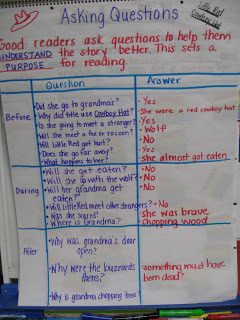 Asking Questions
Little Red
Cowboy Hat
Good readers ask questions to help them
UNDERSTAND the story better. This sets a
PURPOSE for reading.
Question
Answer
Before
Did she go to grandmas?
Yes
Why did title use Cowboy Hat?
She wore a red cowboy hat
Is she going to meet a stranger?
Yes
Will she meet a fox or racoon?
Wolf
Will Little Red get hurt?
No
Does she go far away?
Yes
What happens to her?
She almost got eaten.
During
Will she get eaten?
No
Will she go with the wolf?
No
Will her grandma get
eaten?
No
Will Little Red meet other strangers?
No
Was she scared?
She was brave
Where is Grandma?
Chopping wood
After
Why was grandma's door
open?
Why were the buzzards
there?
something must have
been dead?
Why is grandma chopping trees?